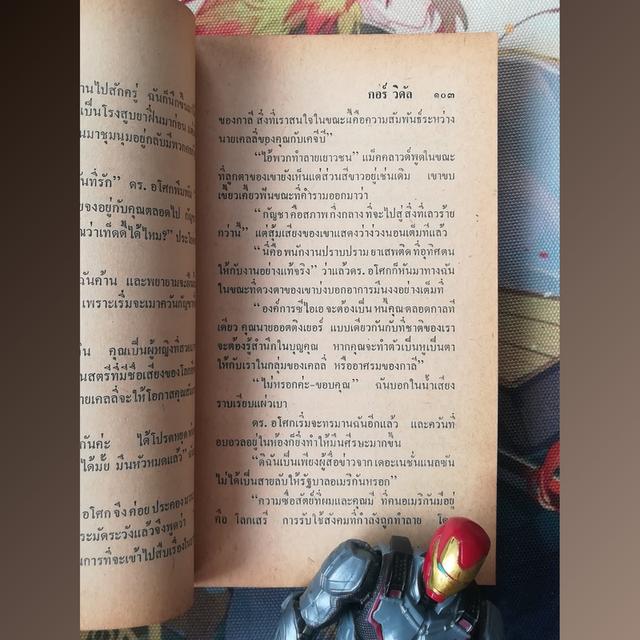 านไปสักครู่ ฉันก็นึกขึ้น
เป็นโรงสูบยาฝิ่นมาก่อน
นมาชุมนุมอยู่กลับมีพวก
ันที่รัก” ดร. อโศกพึมพำ
ยจงอยู่กับคุณตลอดไป
ณว่าเท็ดดี้ได้ไหม?”
ฉันค้าน และพยายามจะ
เพราะเริ่มจะเมาควันกัญชา
ัน คุณเป็นผู้หญิงที่
นสตรีที่มีชื่อเสียงของโลก
ายเคลลี่จะให้โอกาสคุณ
กันค่ะ ได้โปรดหยุด
ได้มั้ย มึนหัวหมดแล้ว”
อโศก จึงค่อย ประคอง
ะมัดระวังแล้วจึงพูดว่า
นการที่จะเข้าไปสืบเรื่อง
กอร์ วิดัล ๑๐๓
ของกาลี สิ่งที่เราสนใจในขณะนี้คือความสัมพันธ์ระหว่าง
นายเคลลี่ของคุณกับเคจีบี”
“ไอ้พวกทำลายเยาวชน” แม็คคลาวด์พูดในขณะ
ที่ลูกตาของเขายังเห็นแต่ส่วนสีขาวอยู่เช่นเดิม เขาขบ
เขี้ยวเคี้ยวฟันขณะที่คำรามออกมาว่า
“กัญชาคือสภาพกึ่งกลางที่จะไปสู่สิ่งที่เลวร้าย
กว่านี้” แต่สุ้มเสียงของเขาแสดงว่าง่วงนอนเต็มที่แล้ว
“นี่คือพนักงานปราบปรามยาเสพติดที่อุทิศตน
ให้กับงานอย่างแท้จริง” ว่าแล้วดร. อโศกก็หันมาทางฉัน
ในขณะที่ดวงตาของเขาบ่งบอกอาการมึนงงอย่างเต็มที่
“องค์การซีไอเอจะต้องเป็นหนี้คุณตลอดกาลที
เดียว คุณนายออตติงเยอร์ แบบเดียวกันกับที่ชาตของเรา
จะต้องรู้สำนึกในบุญคุณ หากคุณจะทำตัวเป็นหูเป็นตา
ให้กับเราในกลุ่มของเคลลี่ หรืออาศรมของกาลี”
“ไม่หรอกค่ะ-ขอบคุณ” ฉันบอกในน้ำเสียง
ราบเรียบแผ่วเบา
ดร. อโศกเริ่มจะทรมานฉันอีกแล้ว และควันที่
อบอวลอยู่ในห้องก็ยิ่งทำให้มึนศีรษะมากขึ้น
“ดิฉันเป็นเพียงผู้สื่อข่าวจากเดอะเนชั่นแนลซัน
ไม่ได้เป็นสายลับให้รัฐบาลอเมริกันหรอก”
“ความซื่อสัตย์ที่ผมและคุณมี ที่คนอเมริกันมีอยู่
คือ โลกเสรี การรับใช้สังคมที่กำลังถูกทำลาย